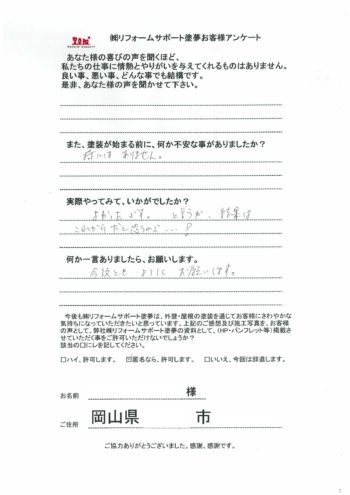 ㈱リフォームサポート塗夢お客様アンケート
あなた様の喜びの声を聞くほど、
私たちの仕事に情熱とやりがいを与えてくれるものはありません。
良い事、悪い事、どんな事でも結構です。
是非、あなた様の声を聞かせて下さい。
また、塗装が始まる前に、何か不安な事がありましたか？
特には ありません。
実際やってみて、いかがでしたか？
よかったです。 というか、結果は
これからだと思うので…？
何か一言ありましたら、お願いします。
今後とも よろしく お願いします。
今後も㈱リフォームサポート塗夢は、外壁・屋根の塗装を通じてお客様にさわやかな
気持ちになっていただきたいと思っています。上記のご感想及び施工写真を、お客様
の声として、弊社㈱リフォームサポート塗夢の資料として、（HP・パンフレット等）掲載さ
せていただく事をご許可いただけないでしょうか？
該当の口にレを記してください。
□ハイ、許可します。 ☑匿名なら、許可します。 □いいえ、今回は辞退します。
お名前 様
ご住所 岡山県 市
ご協力ありがとうございました。感謝、感謝です。